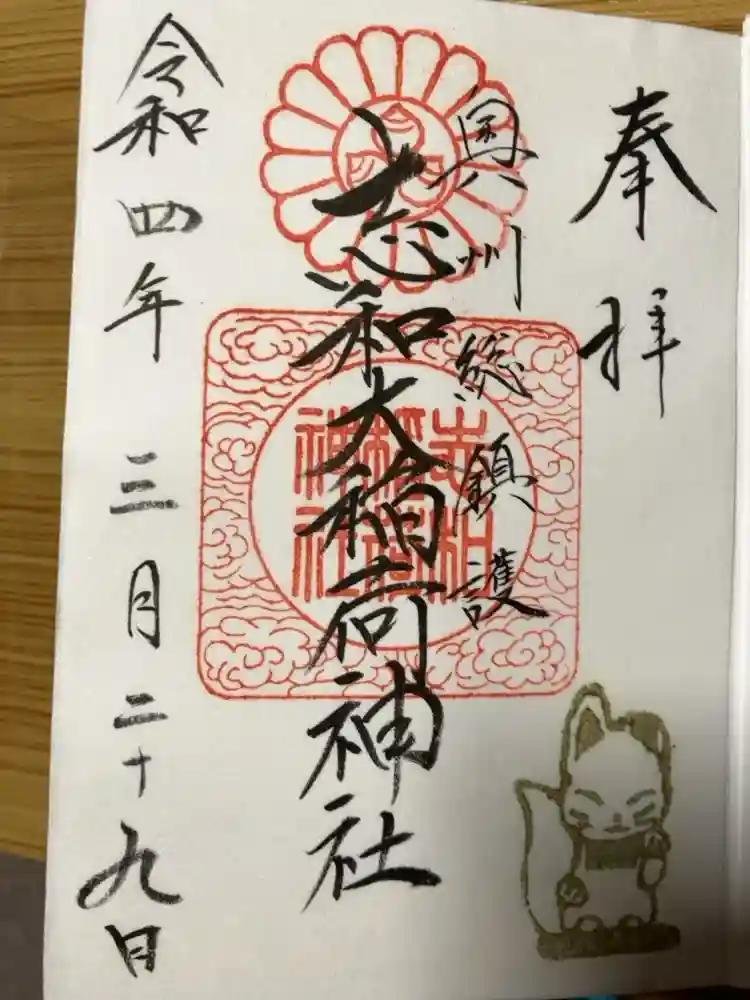 奉拝
奥州総鎮護
志和大稲荷神社
志和
稲荷
神社
令和四年三月二十九日